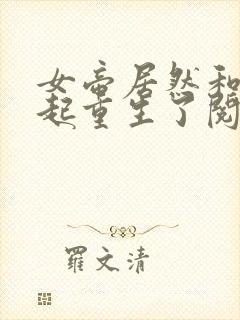 女帝居然和
起重生了阅
羅文清